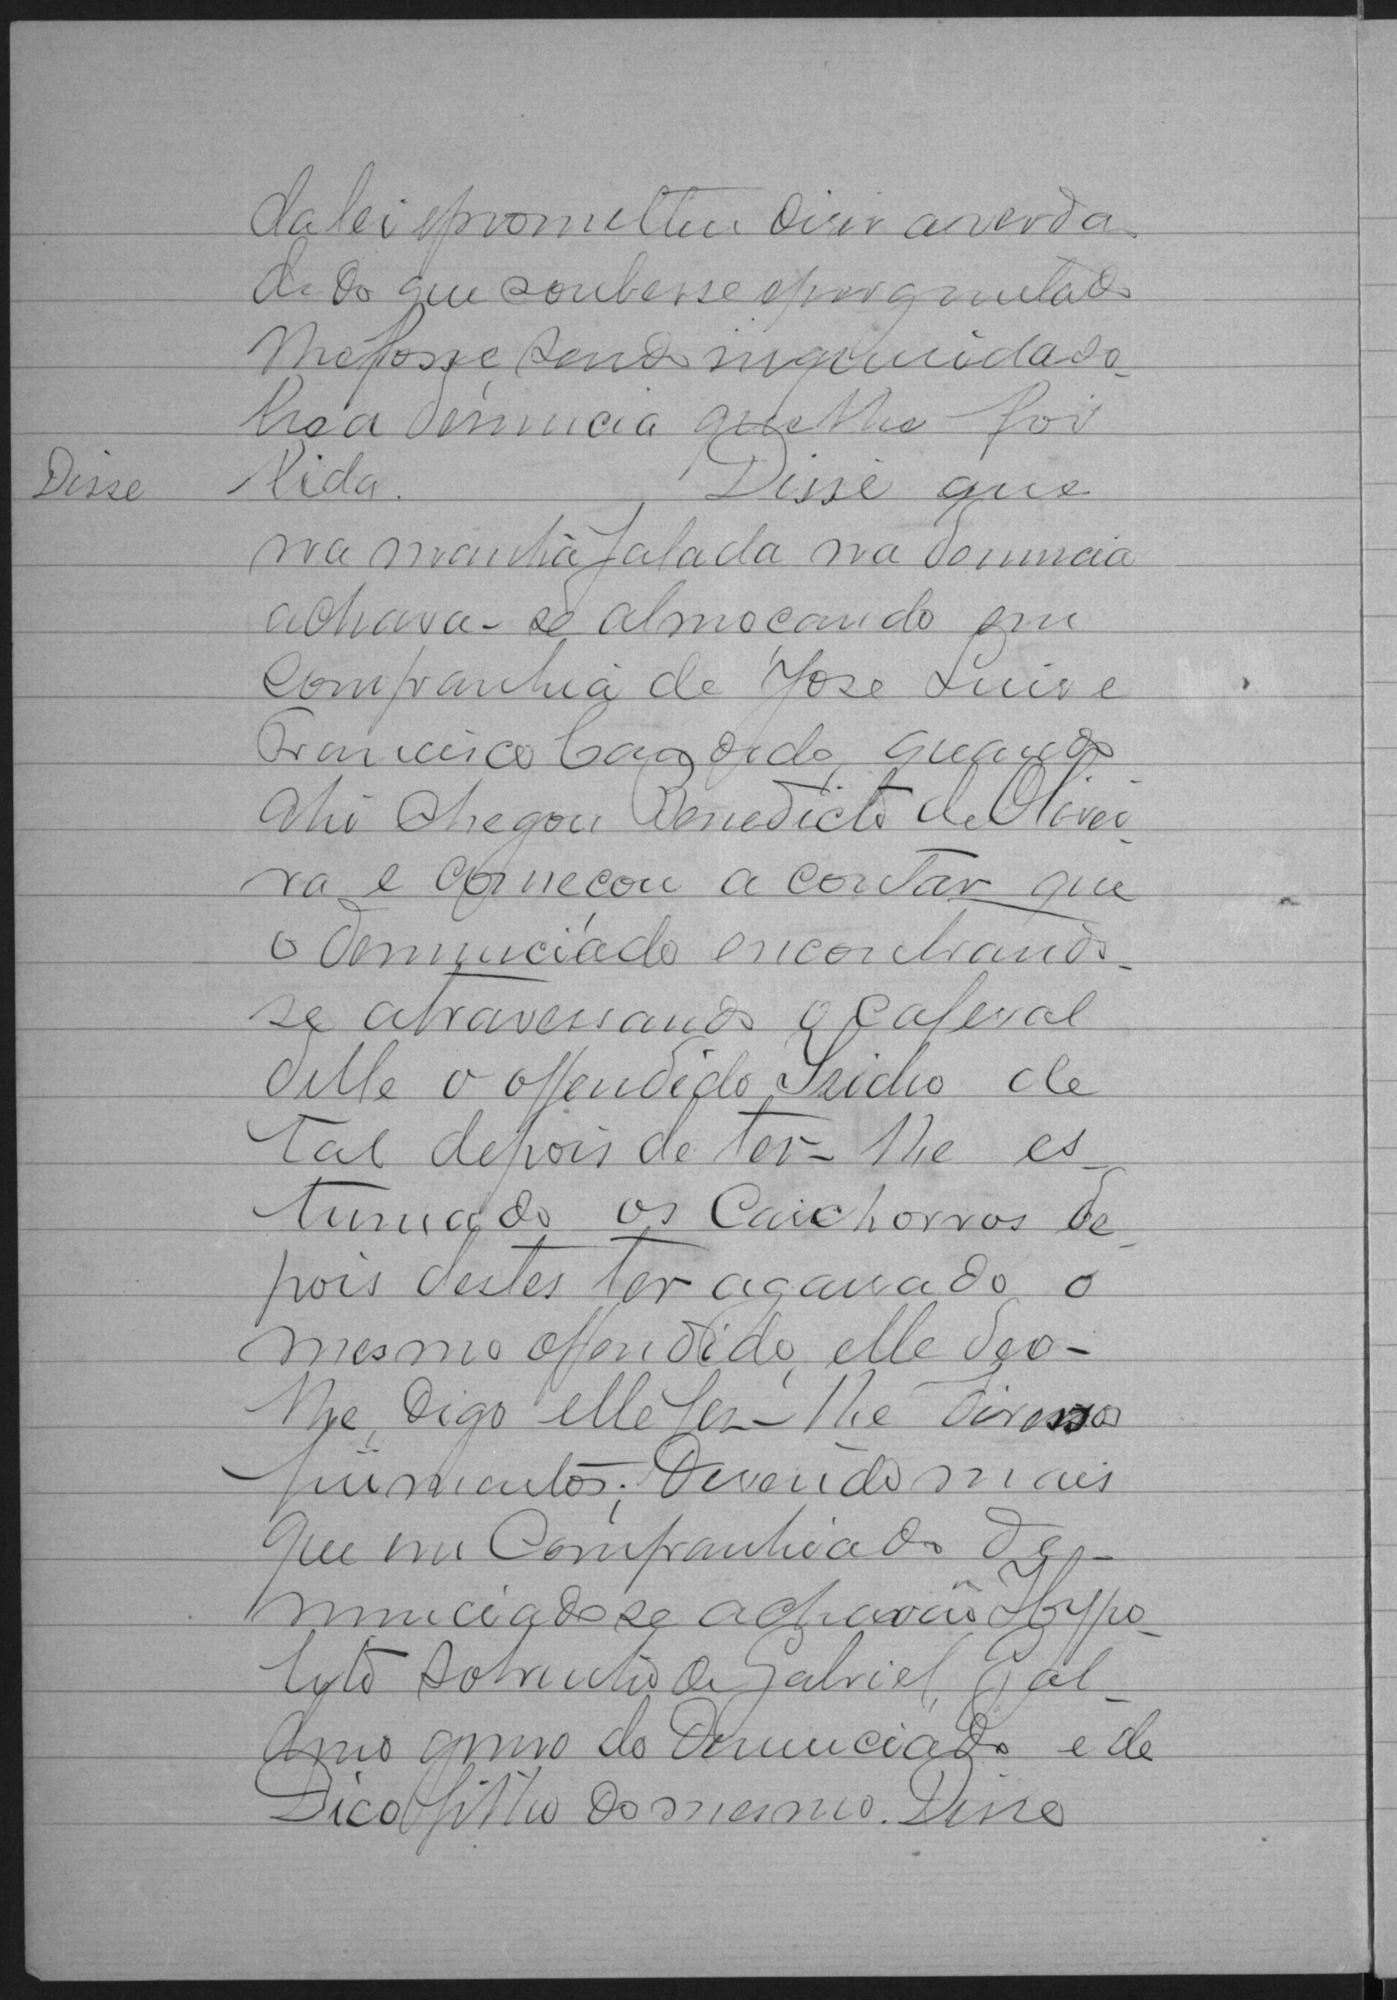 da lei e prometteu diser a verda
de do que soubesse e perguntado
lhe fosse, sendo inquirido da do
lhe a denuncia que lhe foi
Disse lida. Disse que
na manhã falada na denuncia
achava-se almoçando em
Companhia de Jose Luis e
Francisco quando
ahi chegou Benedicto de Olivei
ra e começou a contar que
o denunciado encontrando-
se atravessando o cafesal
delle o offendido Izidio de
tal depois de ter-lhe es-
tumado os Caichorros de-
pois destes ter agarrado o
mesmo offendido, elle deo-
lhe, digo elle fes-lhe diversos
firimentos; Disendo mais
que em Companhia do De-
nunciado se achavão Hypo-
lyto sobrinho de Gabriel, Gal-
dino genro do Denunciado e de
Dico filho do mesmo. Disse